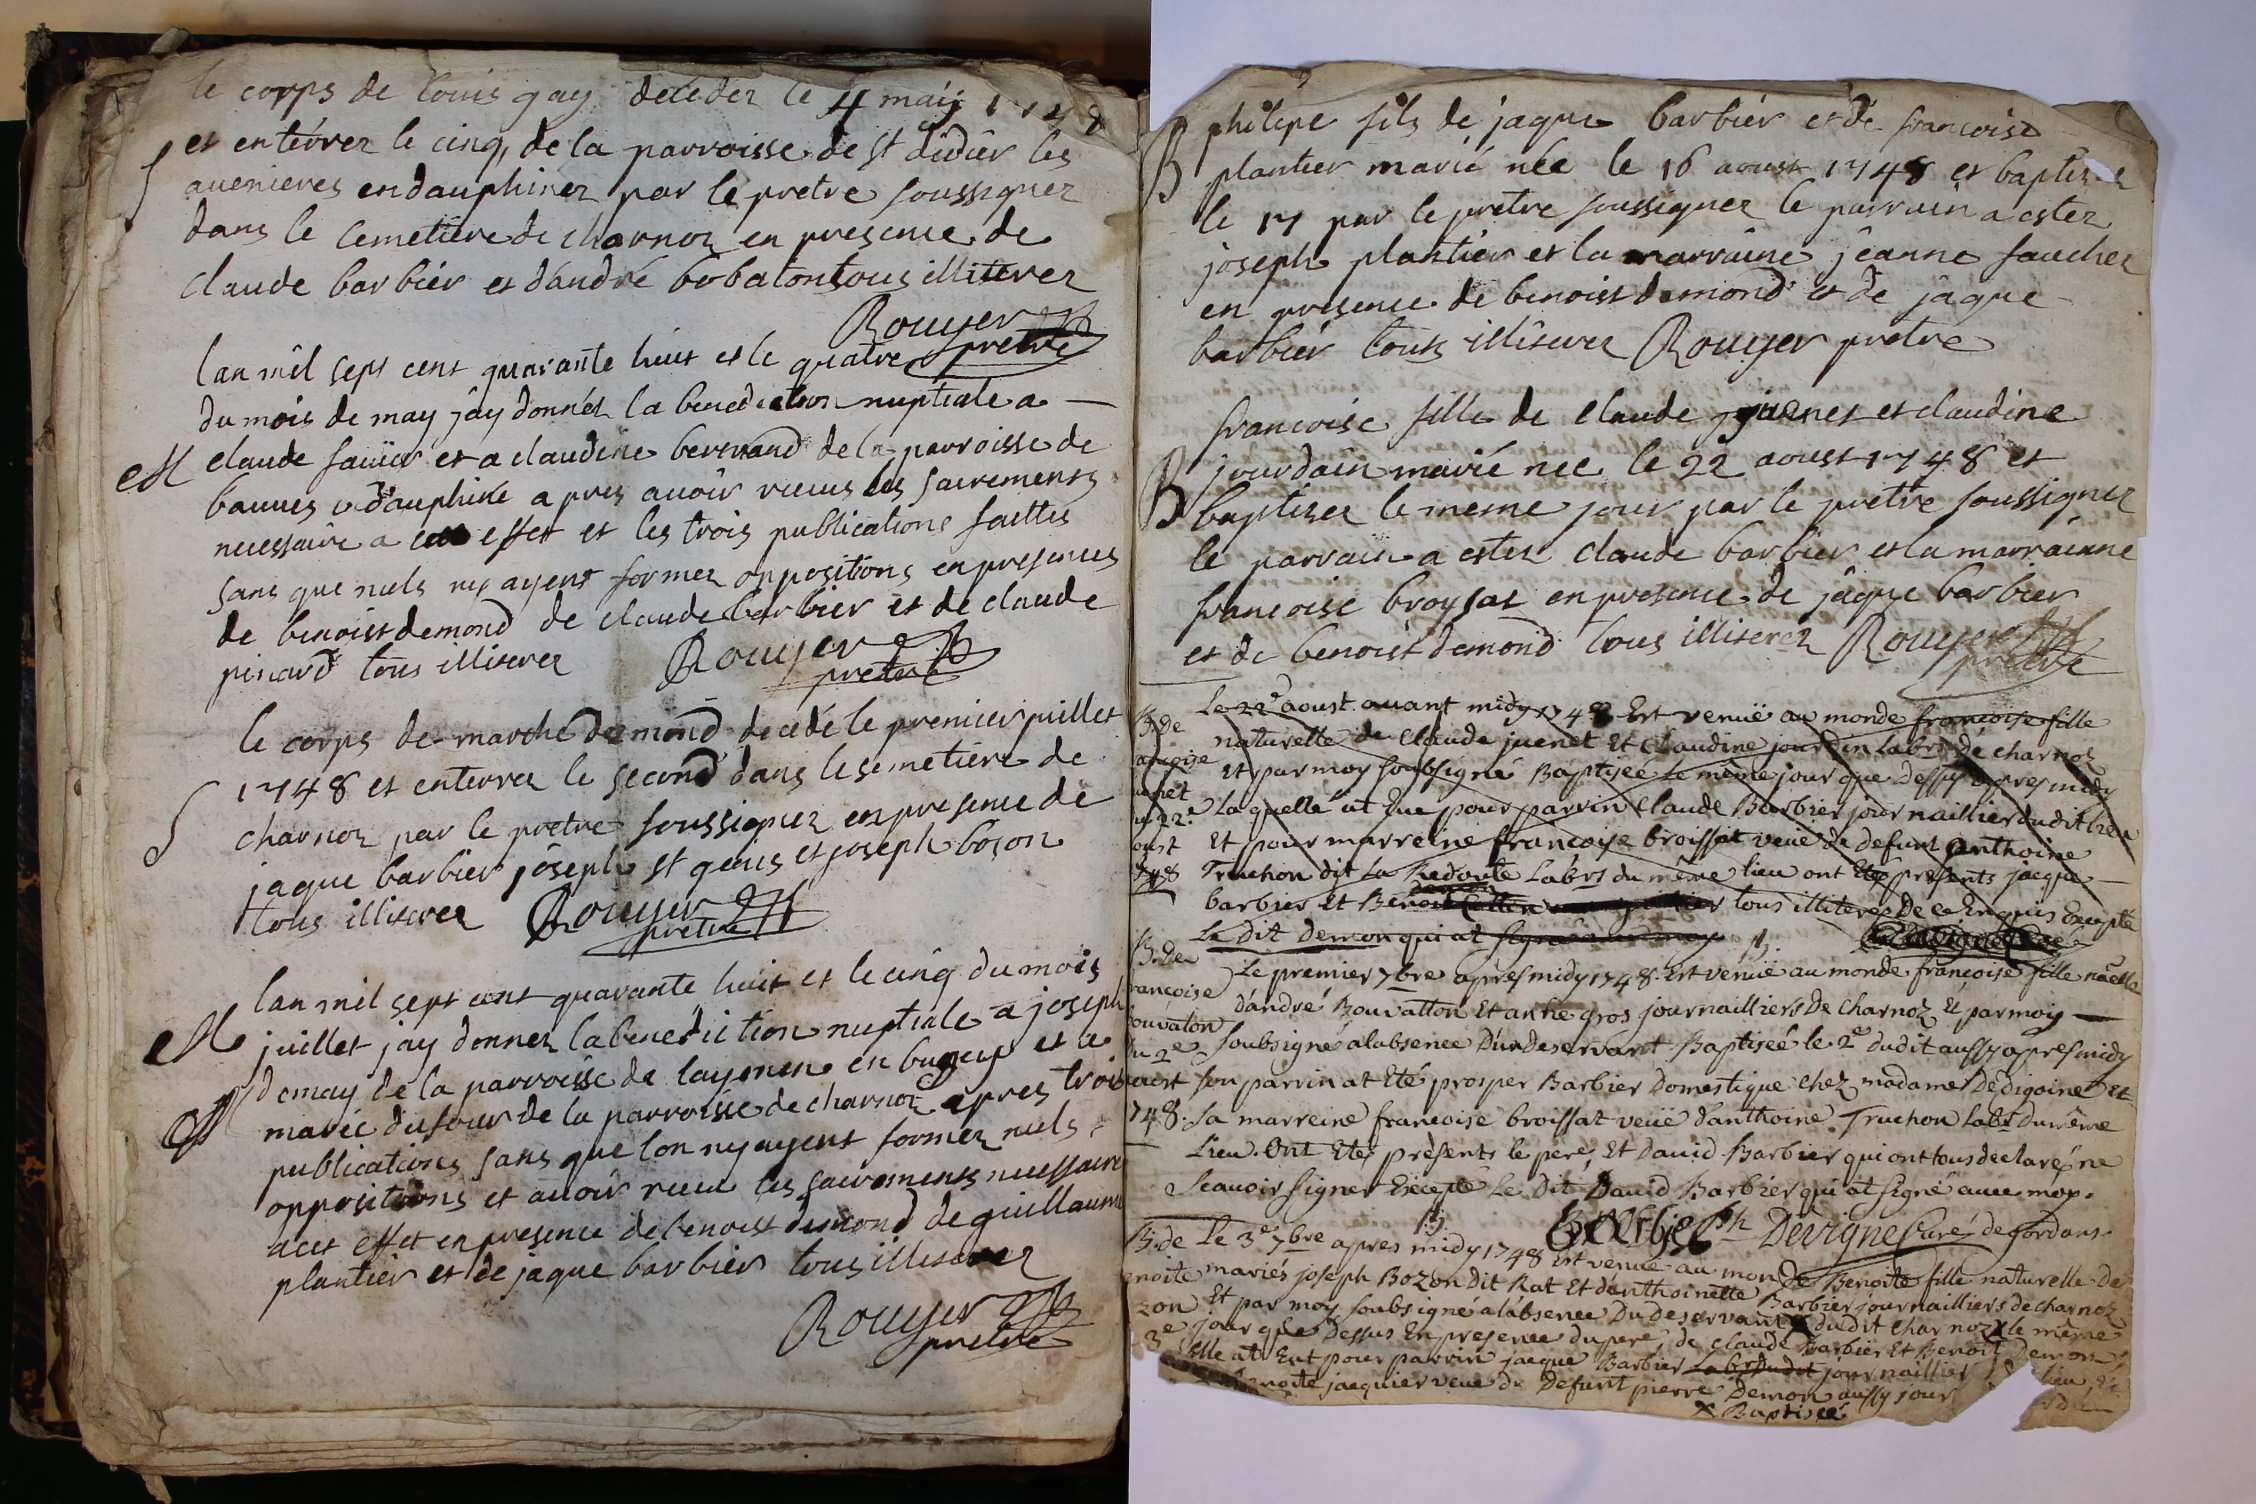 le corps de Louis gay decedez le 4 maÿ 1748
S
et enterrez le cinq, de la parroisse de st didier les
auenieres en dauphinez par le pretre soussignez
dans le cemetiere de charnoz en presence de
claude barbiér et dandré bobaton tous illiterez
Rouyer
pretre
lan mil sept cent quarante huit et le quatre
du mois de may jay donnéz la benediction nuptiale a
M
claude et a claudine bertrand de la parroisse de
dauphiné apres auoir receus les sacrements
necessaire a cet effet et les trois publications faittes
sans que nuls ny ayent formez oppositions en presences
de benoist demond de claude barbier et de claude
pinard tous illiterez
Rouyer
pretre
le corps de marché demond decedé le premier juillet
S
1748 et enterrez le second dans le semetiere de
charnoz par le pretre soussignez en presence de
jaque barbier joseph st genis et joseph boson
tous illiterez Rouyer
pretre
lan mil sept cent quarante huit et le cinq du mois
M
juillet jay donnez la benediction nuptiale a joseph
demay de la parroisse de layenen en bugeys et a
M
marie dufour de la parroisse de charnoz apres trois
publications sans que lon ny ayent formez nuls
oppositions et auoir receu les sacrements necessaire
acet effet en presence de benoist demond de guillaume
plantier et de jaque barbier tous illiterez
Rouyer
pretre
B
philipe fils de jaque barbiér et de francoise
plantier marié née le 16 aoust 1748 et baptisez
le 17 par le pretre soussignez le parrain a estez
joseph plantier et la marraine jeanne faucher
en presence de benoist demond et de jaque
barbiér touts illiterez Rouyer pretre
francoise fille de claude juenet et claudine
B
jourdain marié nee le 22 aoust 1748 et
baptisez le meme jour par le pretre soussignez
le parrain a estez claude barbier et la marrainne
francoise broysat en presence de jaque barbier
et de benoist demond tous illiterez Rouyer
pretre
B. de
Le 22e aoust auant midy 1748 Est venuë au monde francoise fille
naturelle de Claude juenet Et Claudine jourdin Labrs de charnoz
ancoise
Et par moy soubsigné Baptiseé le même jour que dessus apres midy
uenet
u 22e
Laquelle at Eue pour parrin Claude Barbier journaillier dudit lieu
oust
Et pour marreine francoise broissat veuë de defunt anthoine
1748
Truchon dit La Redoute Labrs du même lieu ont Eté présents jacque
barbier Et Benoit tous illiteres De ce Enquis Excepté
Le Dit Demon qui at signé auec moy
B. de
Le premier 7bre apres midy 1748. Est venuë au monde francoise fille nāelle
rancoise
d'andré Bouvatton Et anne gros journailliers De Charnoz Et par moy
ouvaton
u 2e
soubsigné a labsence D'un Deservant Baptisée le 2e dudit aussy apres midy
Son parrin at Eté prosper Barbier Domestique chez madame Dedigoine Et
748.
Sa marreine francoise broissat veuë d'anthoine Truchon Labr du même
Lieu. Ont Eté présents le pere, Et David Barbier qui ont tous declaré ne
Scauoir signer Excepté Le Dit David Barbier qui at signé auec moy.
D Barbier Devigne Curé de gordans.
B. de
Le 3e 7bre apres midy 1748 Est venuë au monde Benoite fille naturelle de
enoite
mariés joseph Bozon dit Rat Et d'enthoinette Barbier journailliers de charnoz
zon
Et par moy soubsigné a l'absence Du deservant X dudit Charnoz le même
3e
jour que Dessus En presence du pere, de claude Barbier Et Benoit Demon
Elle at Eut pour parrin jacque Barbier Labr dudit journaillier lieu, Et
noite jacquier veuë de Defunt pierre Demon aussy jour
X Baptiseé